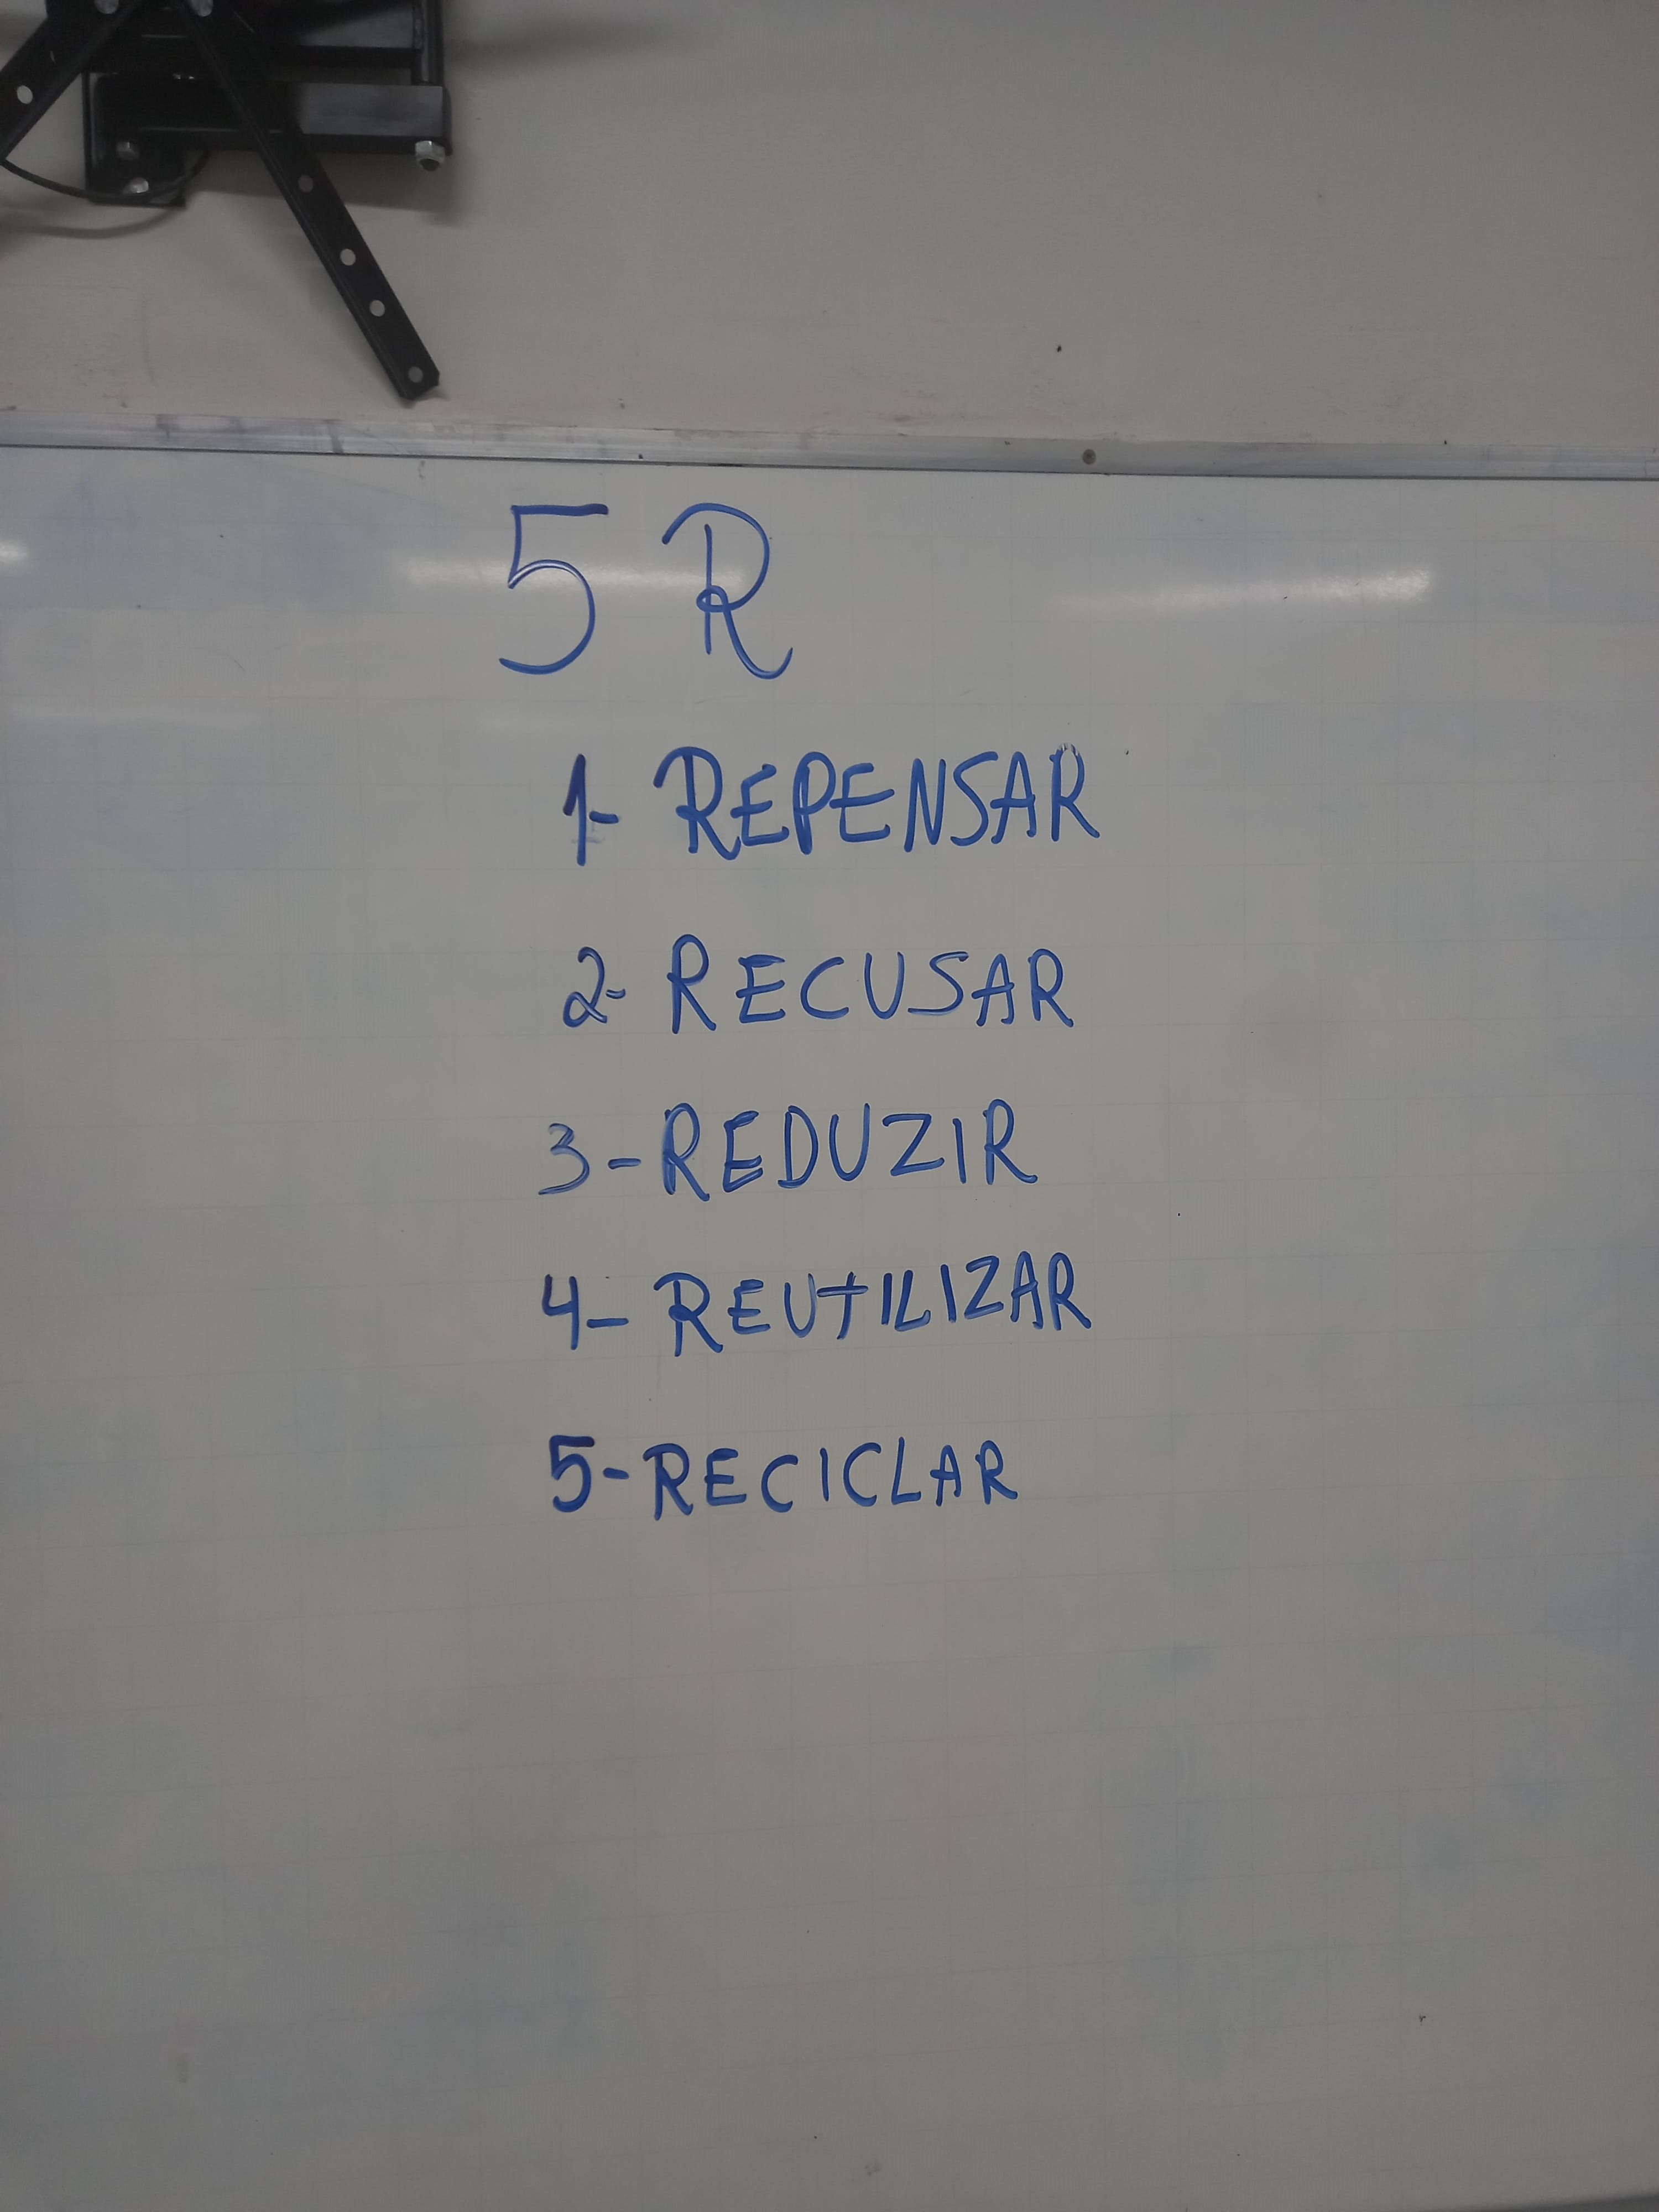 5 R
1- REPENSAR
2- RECUSAR
3- REDUZIR
4- REUTILIZAR
5- RECICLAR